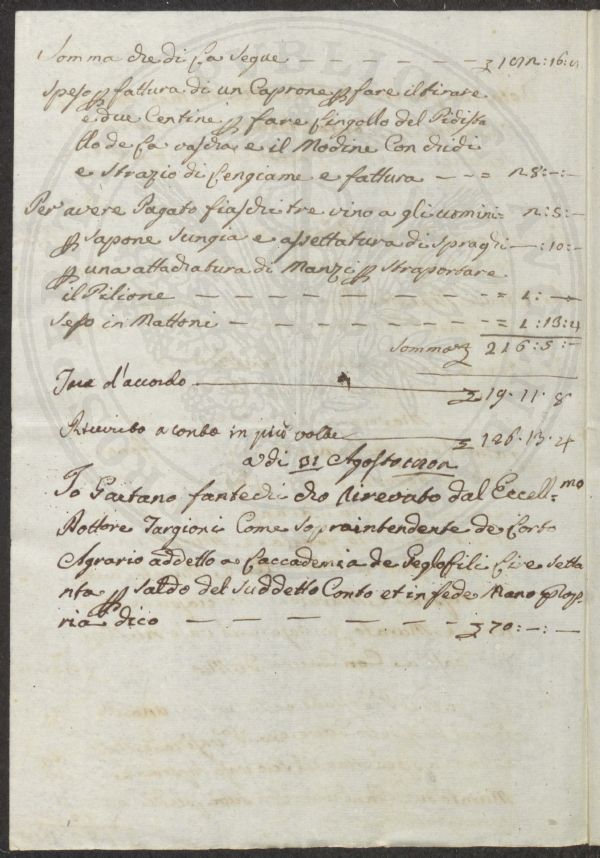 Somma che di La Segue — — — — — — £ 192:16:8
Speso p fattura di un Caprone p fare il tirare
e due Centine p fare Lingollo del Pidista
llo de La vascha e il Modine Con chidi
e Strazio di Lengiame e fattura — — = 28:—:—
Per avere Pagato fiaschi tre vino a gli uomini = 2:5:—
p Sapone Sungia e assettatura di Spraghi —:10:—
p una attachatura di Manzi p Straportare
il Pilione — — — — — — — = 1:—:—
Seso in Mattoni — — — — — — = 1:13:4
Somma £ 216:5:—
Tara d'accordo — £ 19.11.8
Ricevuto a conto in più volte — £ 126.13.4
a di 31 Agosto
Io Gaetano fantechi cho Ricevuto dal Eccell.mo
Dottore Targioni Come Sopraintendente de Lorto
Agrario addetto a Laccademia de Geglofili Lire setta
nta p saldo del Suddetto Conto et in fede Mano Prop
ria dico — — — — — — — £ 70:—:—